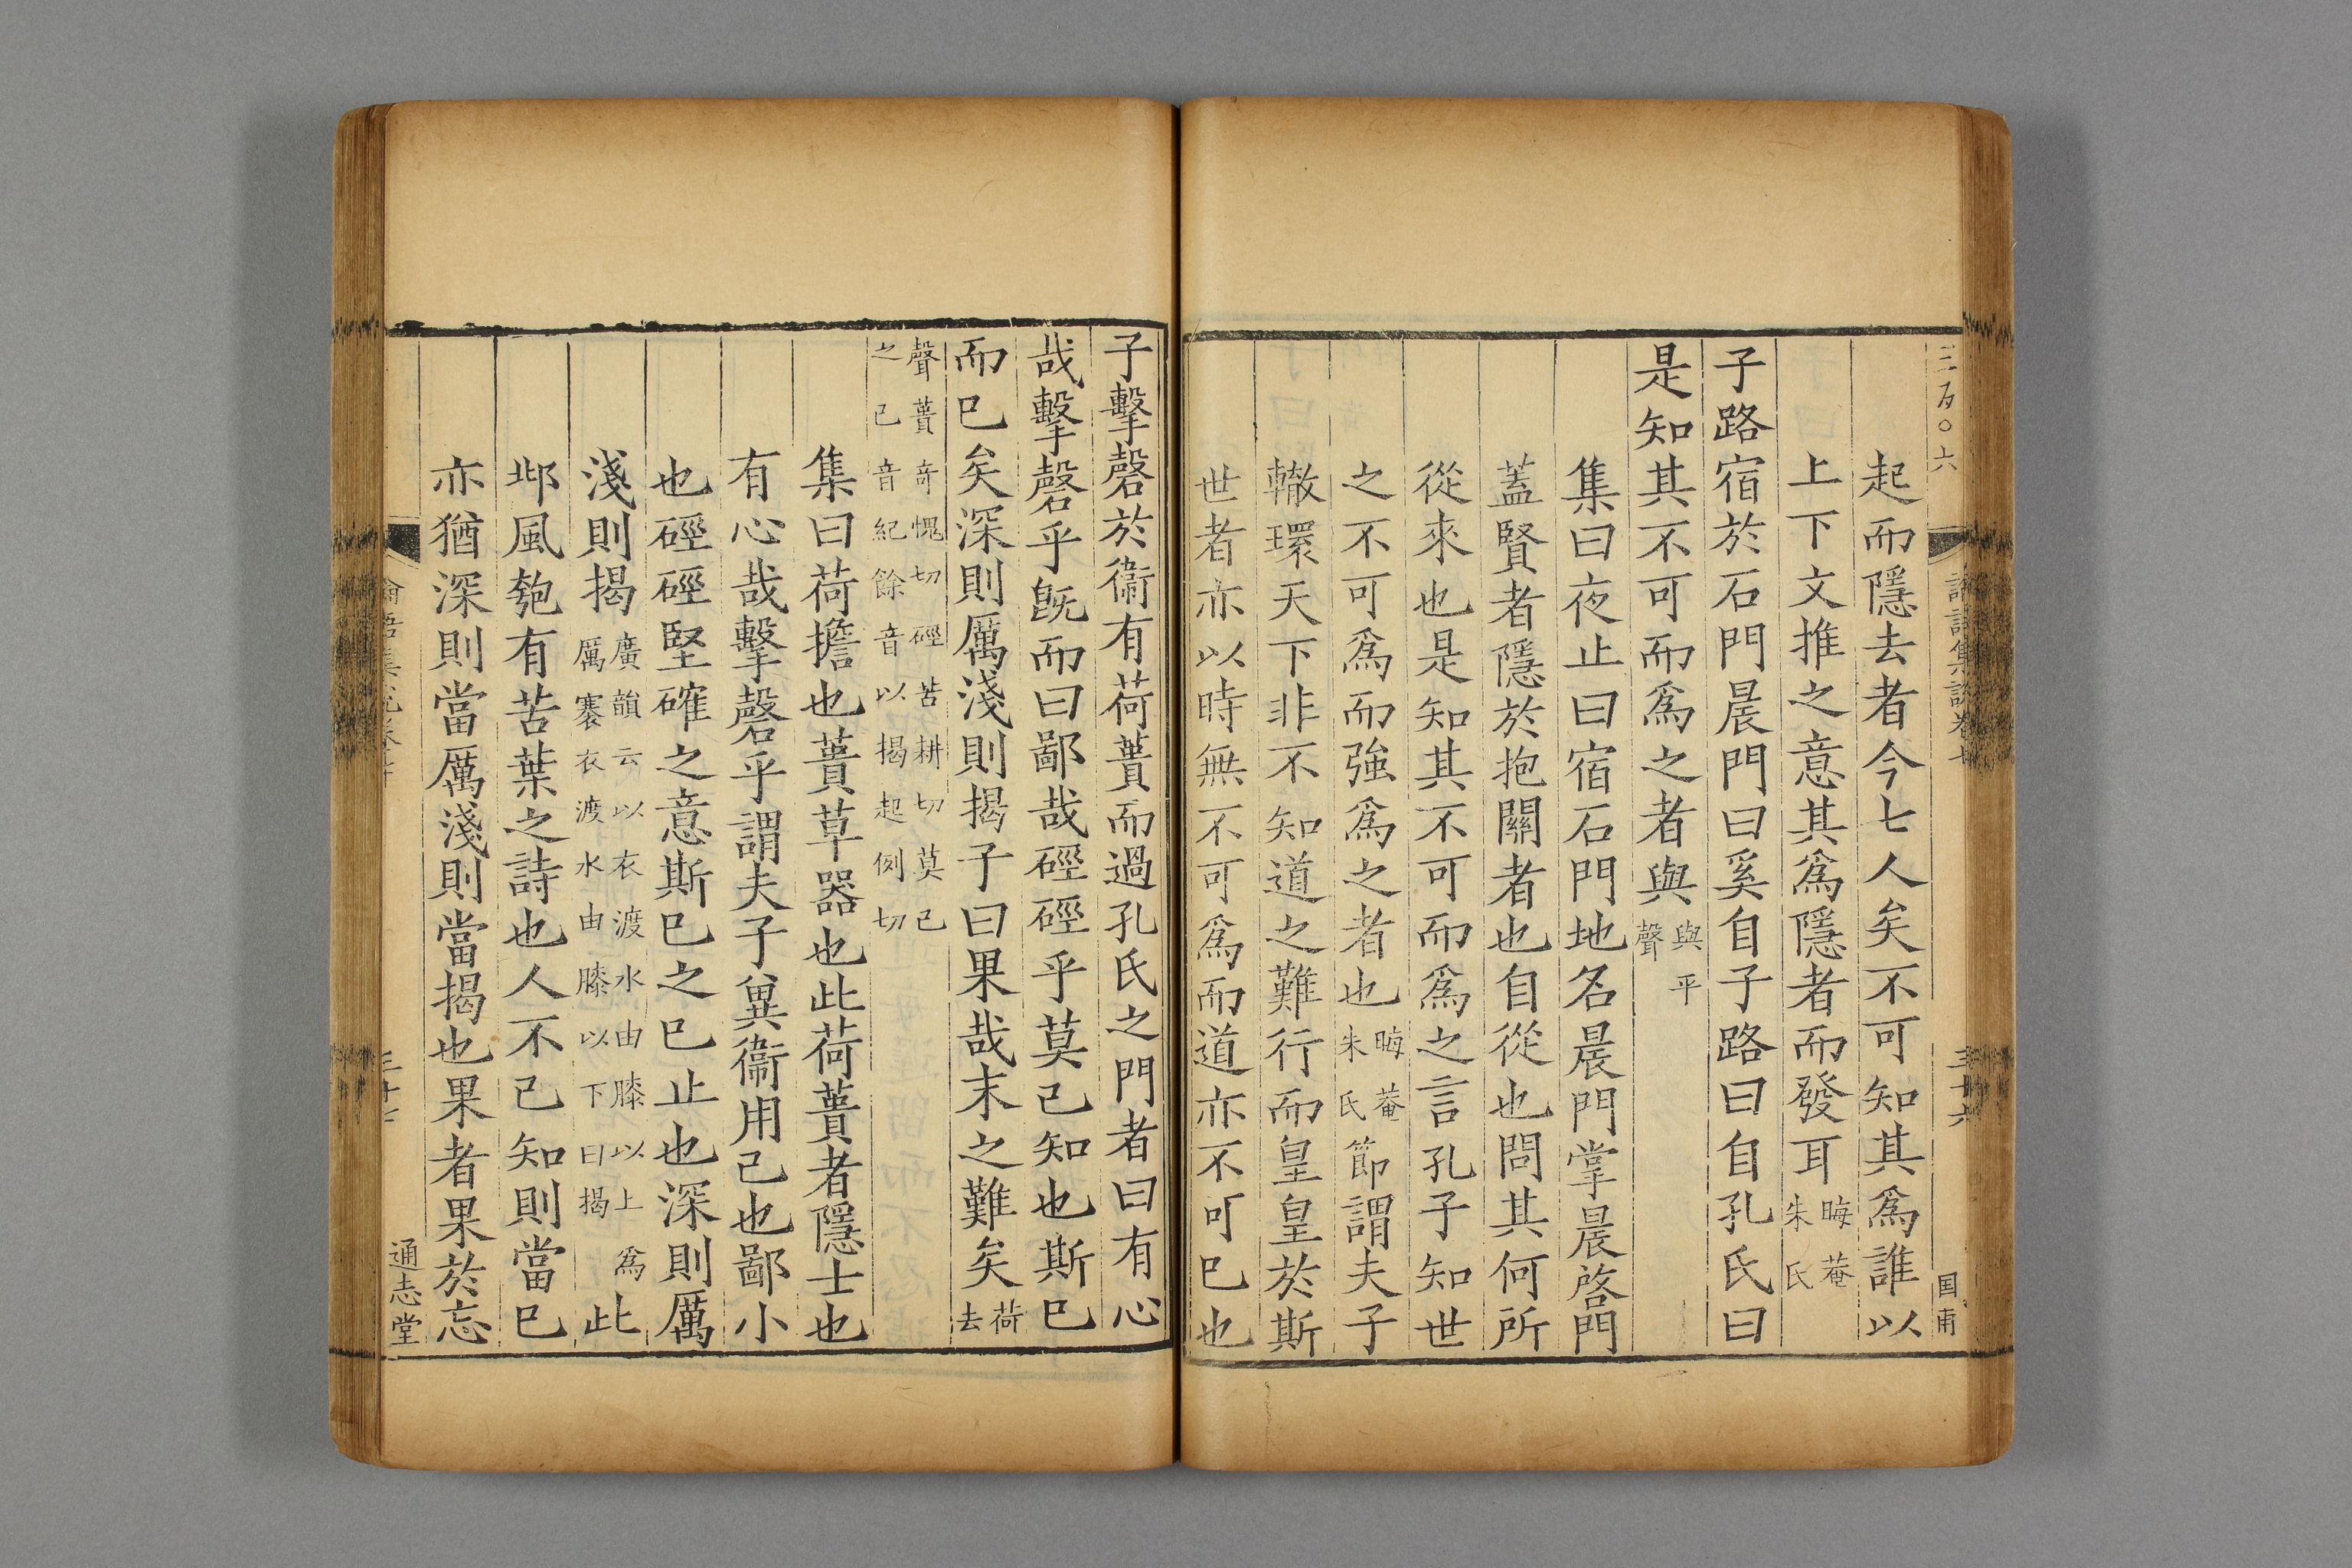 三百〇六
論語集說卷七
三十六
国甫
起而隱去者今七人矣不可知其爲誰以
上下文推之意其爲隱者而發耳晦菴朱氏
子路宿於石門晨門曰奚自子路曰自孔氏曰
是知其不可而爲之者與與平聲
集曰夜止曰宿石門地名晨門掌晨啓門
蓋賢者隱於抱關者也自從也問其何所
從來也是知其不可而爲之言孔子知世
之不可爲而強爲之者也晦菴朱氏節謂夫子
轍環天下非不知道之難行而皇皇於斯
世者亦以時無不可爲而道亦不可巳也
子擊磬於衞有荷蕢而過孔氏之門者曰有心
哉擊磬乎旣而曰鄙哉硜硜乎莫己知也斯巳
而巳矣深則厲淺則揭子曰果哉末之難矣荷去
聲蕢竒愧切硜苦耕切莫己之己音紀餘音以揭起例切
集曰荷擔也蕢草器也此荷蕢者隱士也
有心哉擊磬乎謂夫子兾衞用己也鄙小
也硜硜堅確之意斯巳之巳止也深則厲
淺則揭廣韻云以衣渡水由膝以上爲厲褰衣渡水由膝以下曰揭此
邶風匏有苦葉之詩也人不己知則當巳
亦猶深則當厲淺則當揭也果者果於忘
論語集說卷七
三十七
通志堂